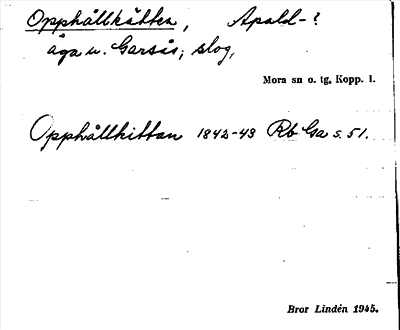 Opphållkåtten, Apald-?
äga u. Garsås; slog,
Mora sn o. tg, Kopp. l.
Opphållkittan 1842-43 Rb Gsa s. 51.
Bror Lindén 1945.